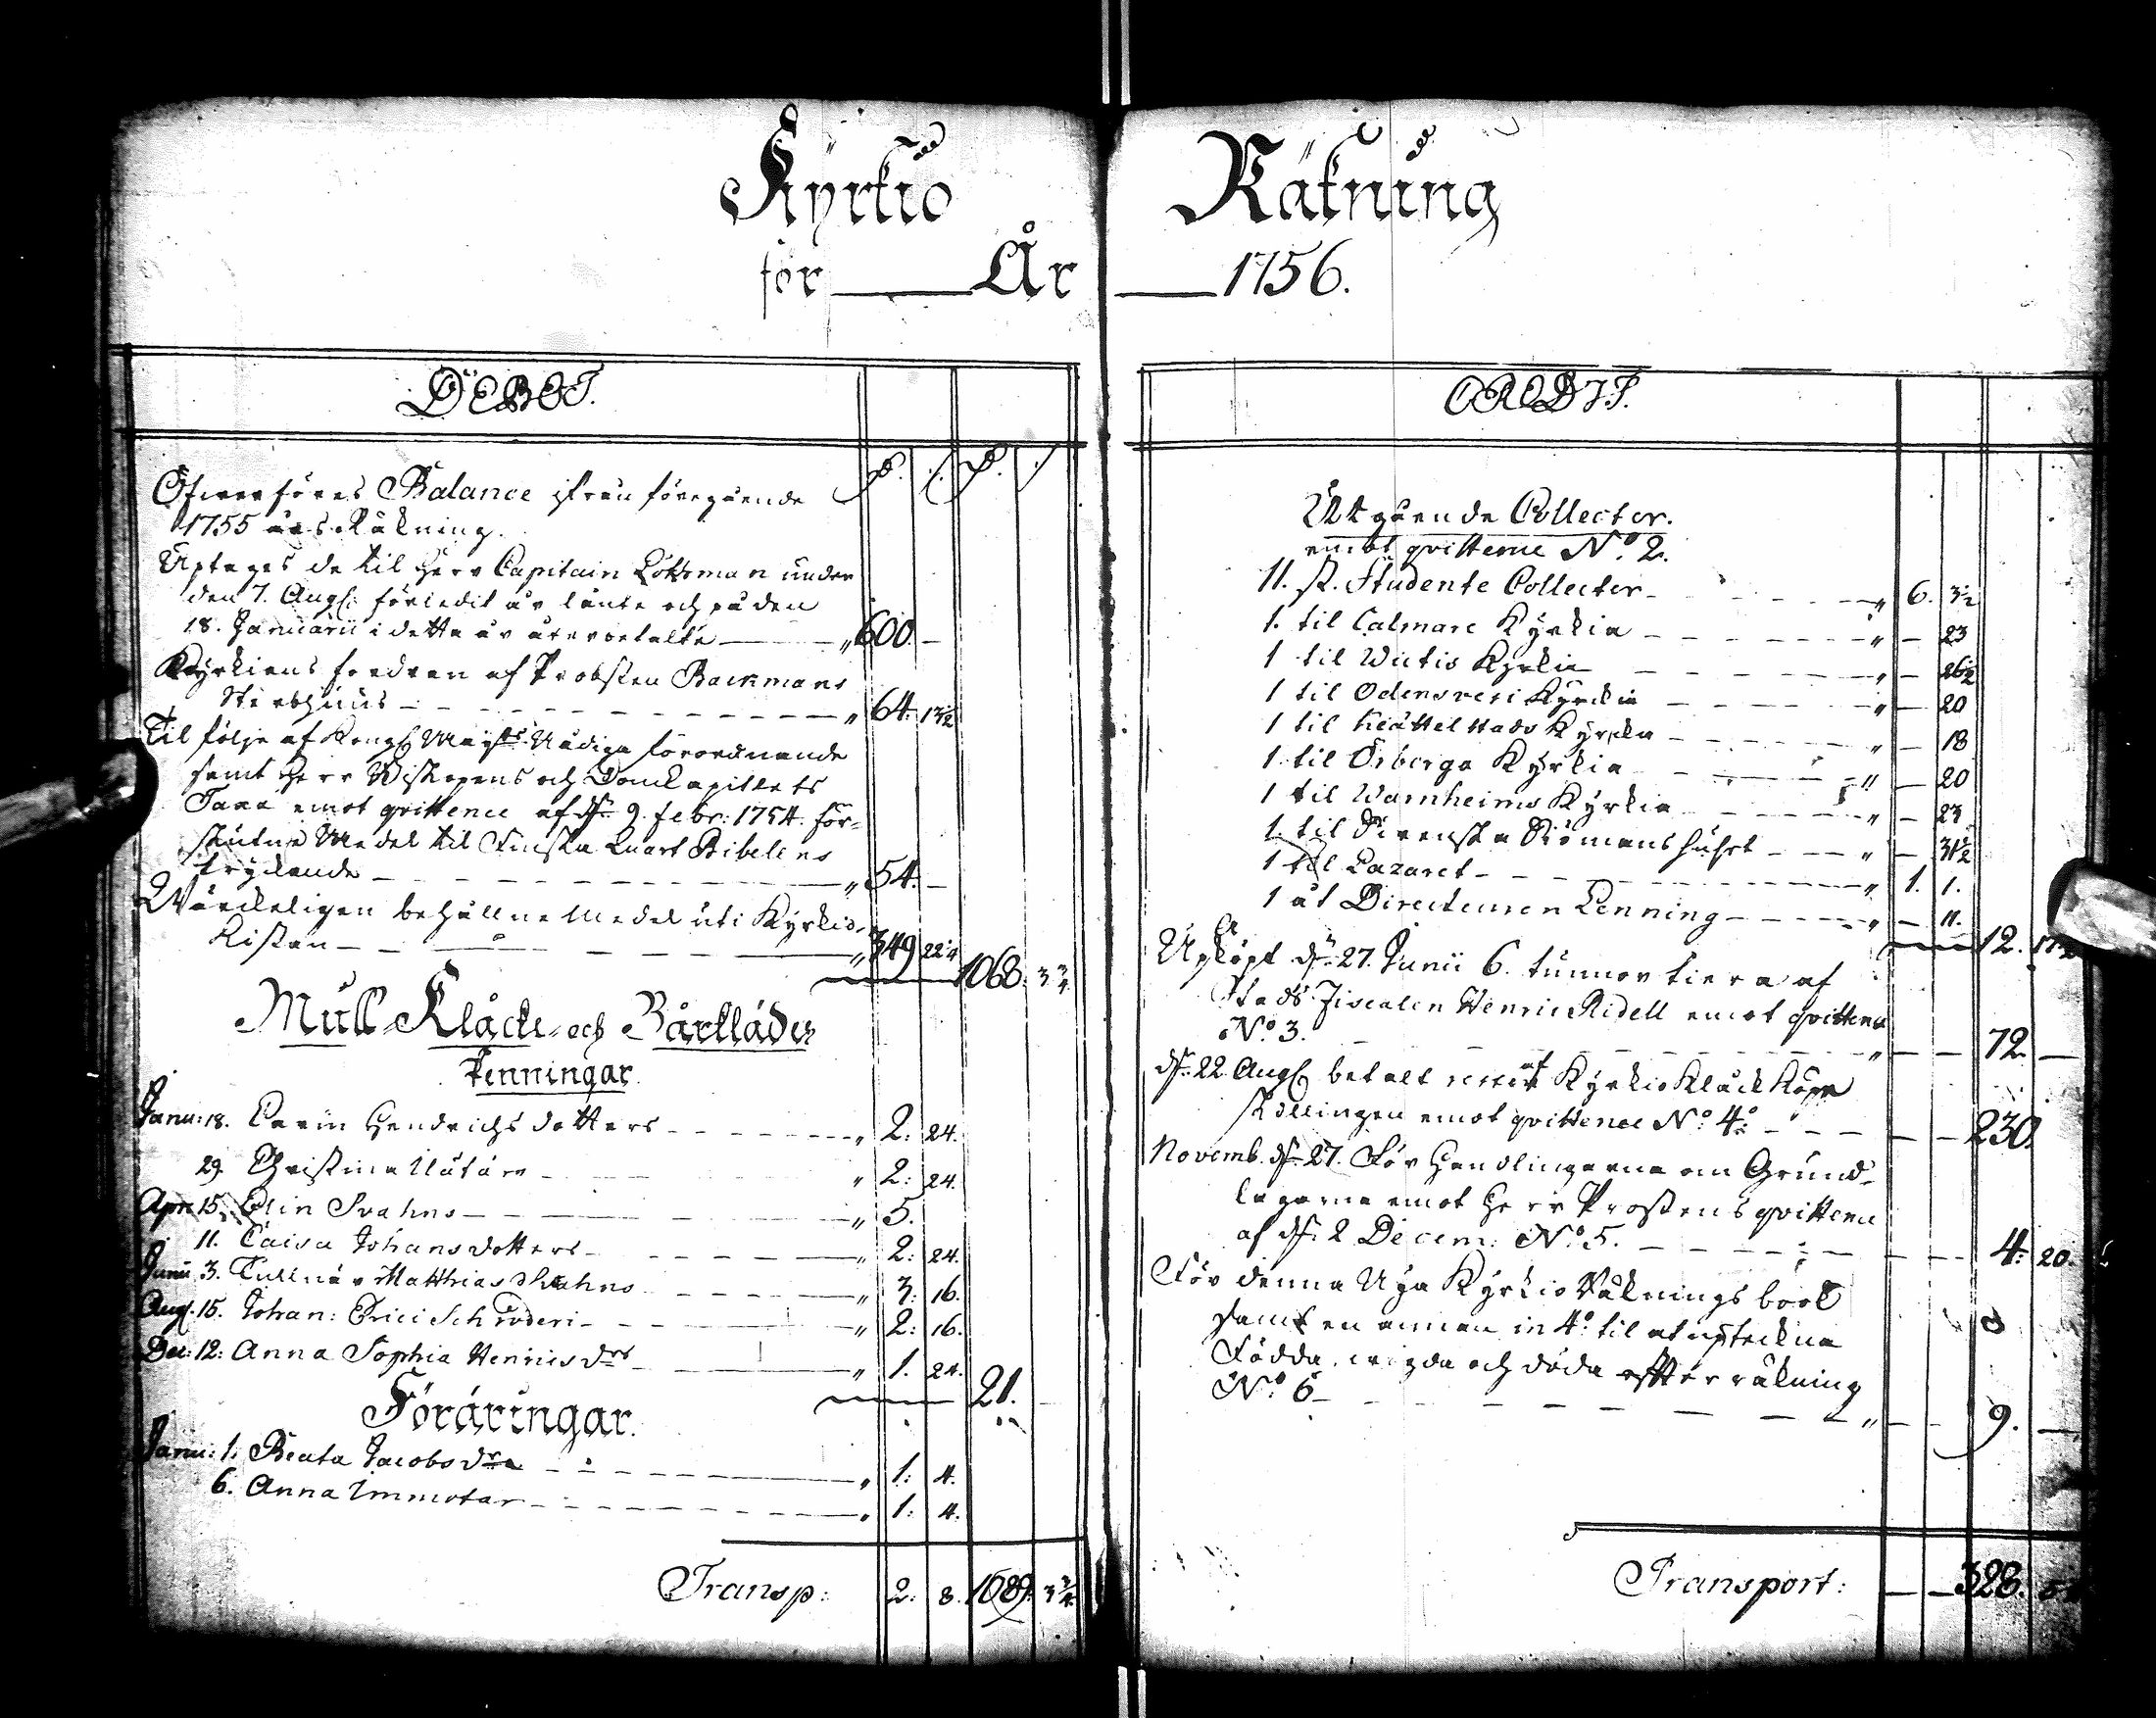 Kyrkio Räkning
för År 1756.
DEBET.
Öfwerföres Balance ifrån föregående
1755 års Räkning.
Uptages de til Herr Capitain Lothman under
den 7. Aug. förledit år länte och på den
18. Januarii i detta år återbetalte 600. —
Kyrkiens fordran af Probsten Backmans
Sterbhuus 64. 13½
Til följe af Kongl. Maÿts Nådiga förordnande
samt Herr Biskopens och Domkapitlets
emot qvittence af d. 9. febr. 1754. för-
skutne Medel til Finska Quart Bibelens
tryckande 54. —
Wärckeligen behållne Medel uti Kyrkio-
Kistan 349 22¼
1068. 3¾
Mull- Klåcke- och Bårklädes
Penningar
Janu: 18. Carin Hendrichs dotters 2: 24.
29. Christina 2: 24.
Apr: 15. Elin Svahns 5.
11. Caisa Johansdotters 2: 24.
Junii 3. Matthias 3: 16.
Aug. 15. Johan: Erici Schröderi 2: 16.
Dec: 12: Anna Sophia Henricsdrs 1. 24.
21. —
Föräringar.
Janu: 1. Beata Jacobsdra 1: 4.
6. Anna Immotar 1: 4.
Transp: 2. 8. 1089. 3¾
CREDIT.
Utgående Collecter.
emot qvittence No. 2.
11. st. Studente Collecter 6. 3½
1. til Calmare Kyrkia — 23
1 til Kyrkia — 26½
1 til Odensvesi Kyrckia — 20
1 til Kiättelstads Kyrcka — 18
1 til Örberga Kyrkia — 20
1 til Warnheims Kyrkia — 23
1 til Svenska Siömanshuset — 31½
1 til Lazaret 1. 1.
1 åt Directeuren Lenning — 11.
12.
Upköpt d. 27. Junii 6. tunnor tiera af
Stads Fiscalen Henric Ridell emot qvittence
No. 3. 72. —
d. 22 Aug. betalt resten af Kyrkio Klåck Köpe
skillingen emot qvittence No. 4. 230.
Novemb. d. 27. För Handlingarna om Grund-
lagarna emot Herr Prostens qvittence
af d. 2 Decem: No. 5. 4: 20.
För denna Nya Kyrkio Räknings book
samt en annan in 4o. til at upteckna
Födda, wigda och döda efter räkning
No. 6 9. —
Transport: 328.